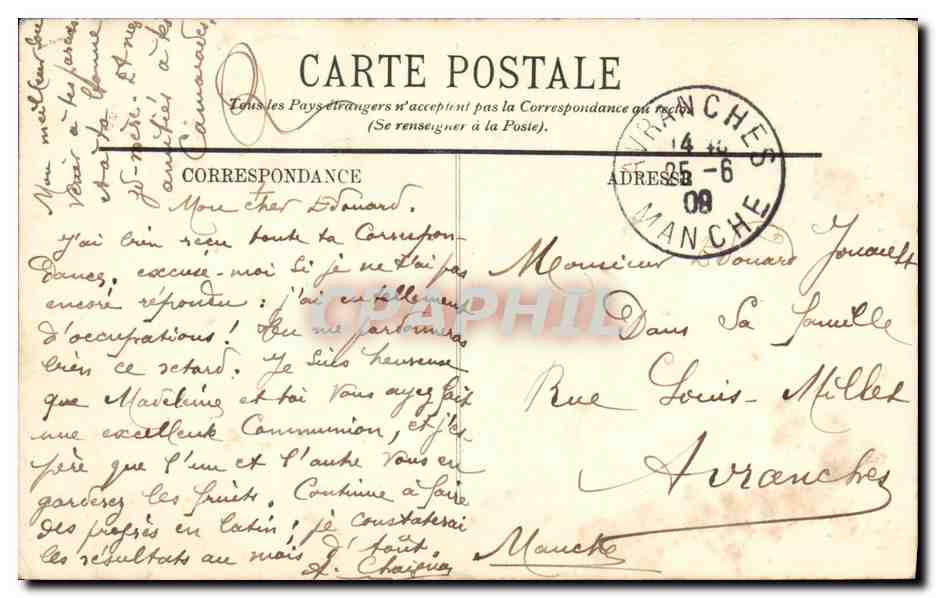 CARTE POSTALE
Tous les Pays étrangers n'acceptent pas la Correspondance au recto
(Se renseigner à la Poste).
CORRESPONDANCE
ADRESSE
AVRANCHES
25 -6
09
MANCHE
Mon cher Edouard.
J'ai bien reçu toute ta Correspon-
dance, excuse-moi si je ne t'ai pas
encore répondu : j'ai eu tellement
d'occupations ! Tu me pardonneras
bien ce retard. Je suis heureuse
que Madeleine et toi vous ayez fait
une excellente Communion, et j'es-
père que l'un et l'autre vous en
garderez les fruits. Continue à faire
des progrès en latin ; je constaterai
les résultats au mois d'août.
Mon meilleur
à tes parents
et à ta bonne
gd-mère. Et mes
amitiés à tes
Camarades.
Monsieur Edouard Jouault
Dans Sa famille
Rue Louis-Millet
Avranches
Manche
CPAPHIL